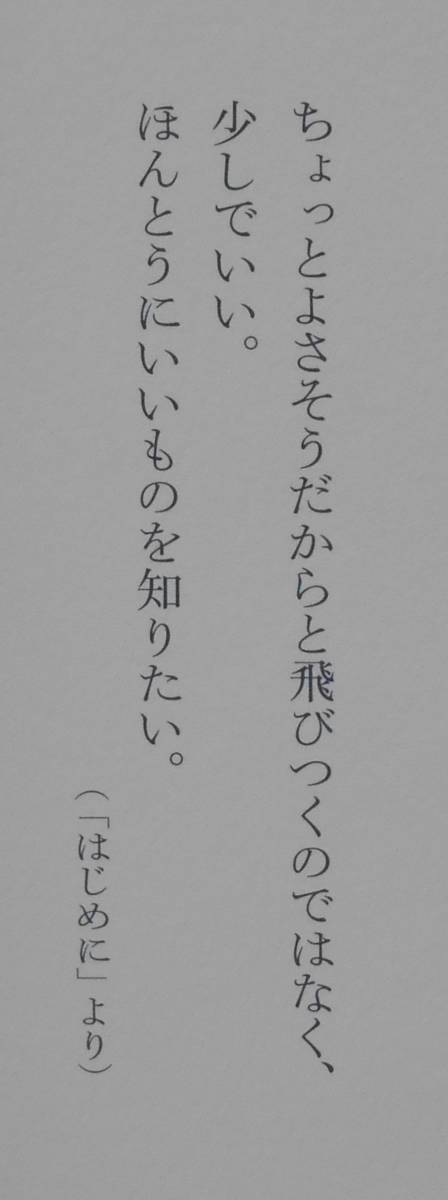 ちょっとよさそうだからと飛びつくのではなく、
少しでいい。
ほんとうにいいものを知りたい。
（「はじめに」より）